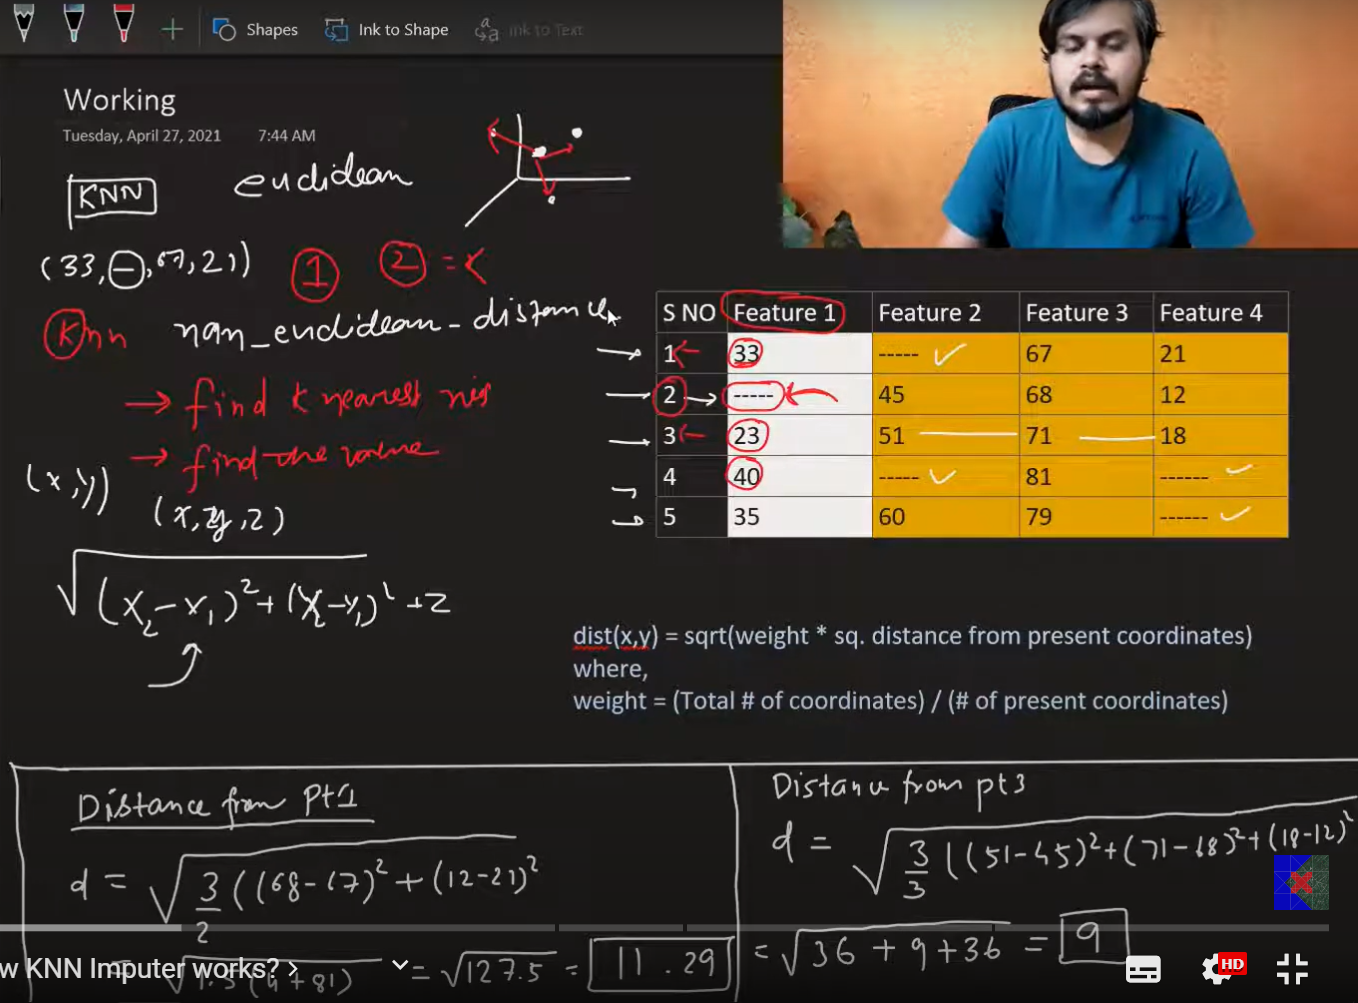 Shapes
Ink to Shape
Ink to Text
Working
Tuesday, April 27, 2021 7:44 AM
KNN euclidean
(33, —, 67, 21) 1 2 = K
Knn nan_euclidean_distance
→ find K nearest
→ find the value
(x, y)
(x, y, z)
√(x₂-x₁)²+(y₂-y₁)²+z
S NO Feature 1 Feature 2 Feature 3 Feature 4
1 33 ----- 67 21
2 ----- 45 68 12
3 23 51 71 18
4 40 ----- 81 ------
5 35 60 79 ------
dist(x,y) = sqrt(weight * sq. distance from present coordinates)
where,
weight = (Total # of coordinates) / (# of present coordinates)
Distance from Pt1
d = √3/2((68-67)²+(12-21)²
= √127.5 = 11.29
Distance from pt3
d = √3/3((51-45)²+(71-68)²+(18-12)²
= √36+9+36 = 9
w KNN Imputer works?
HD